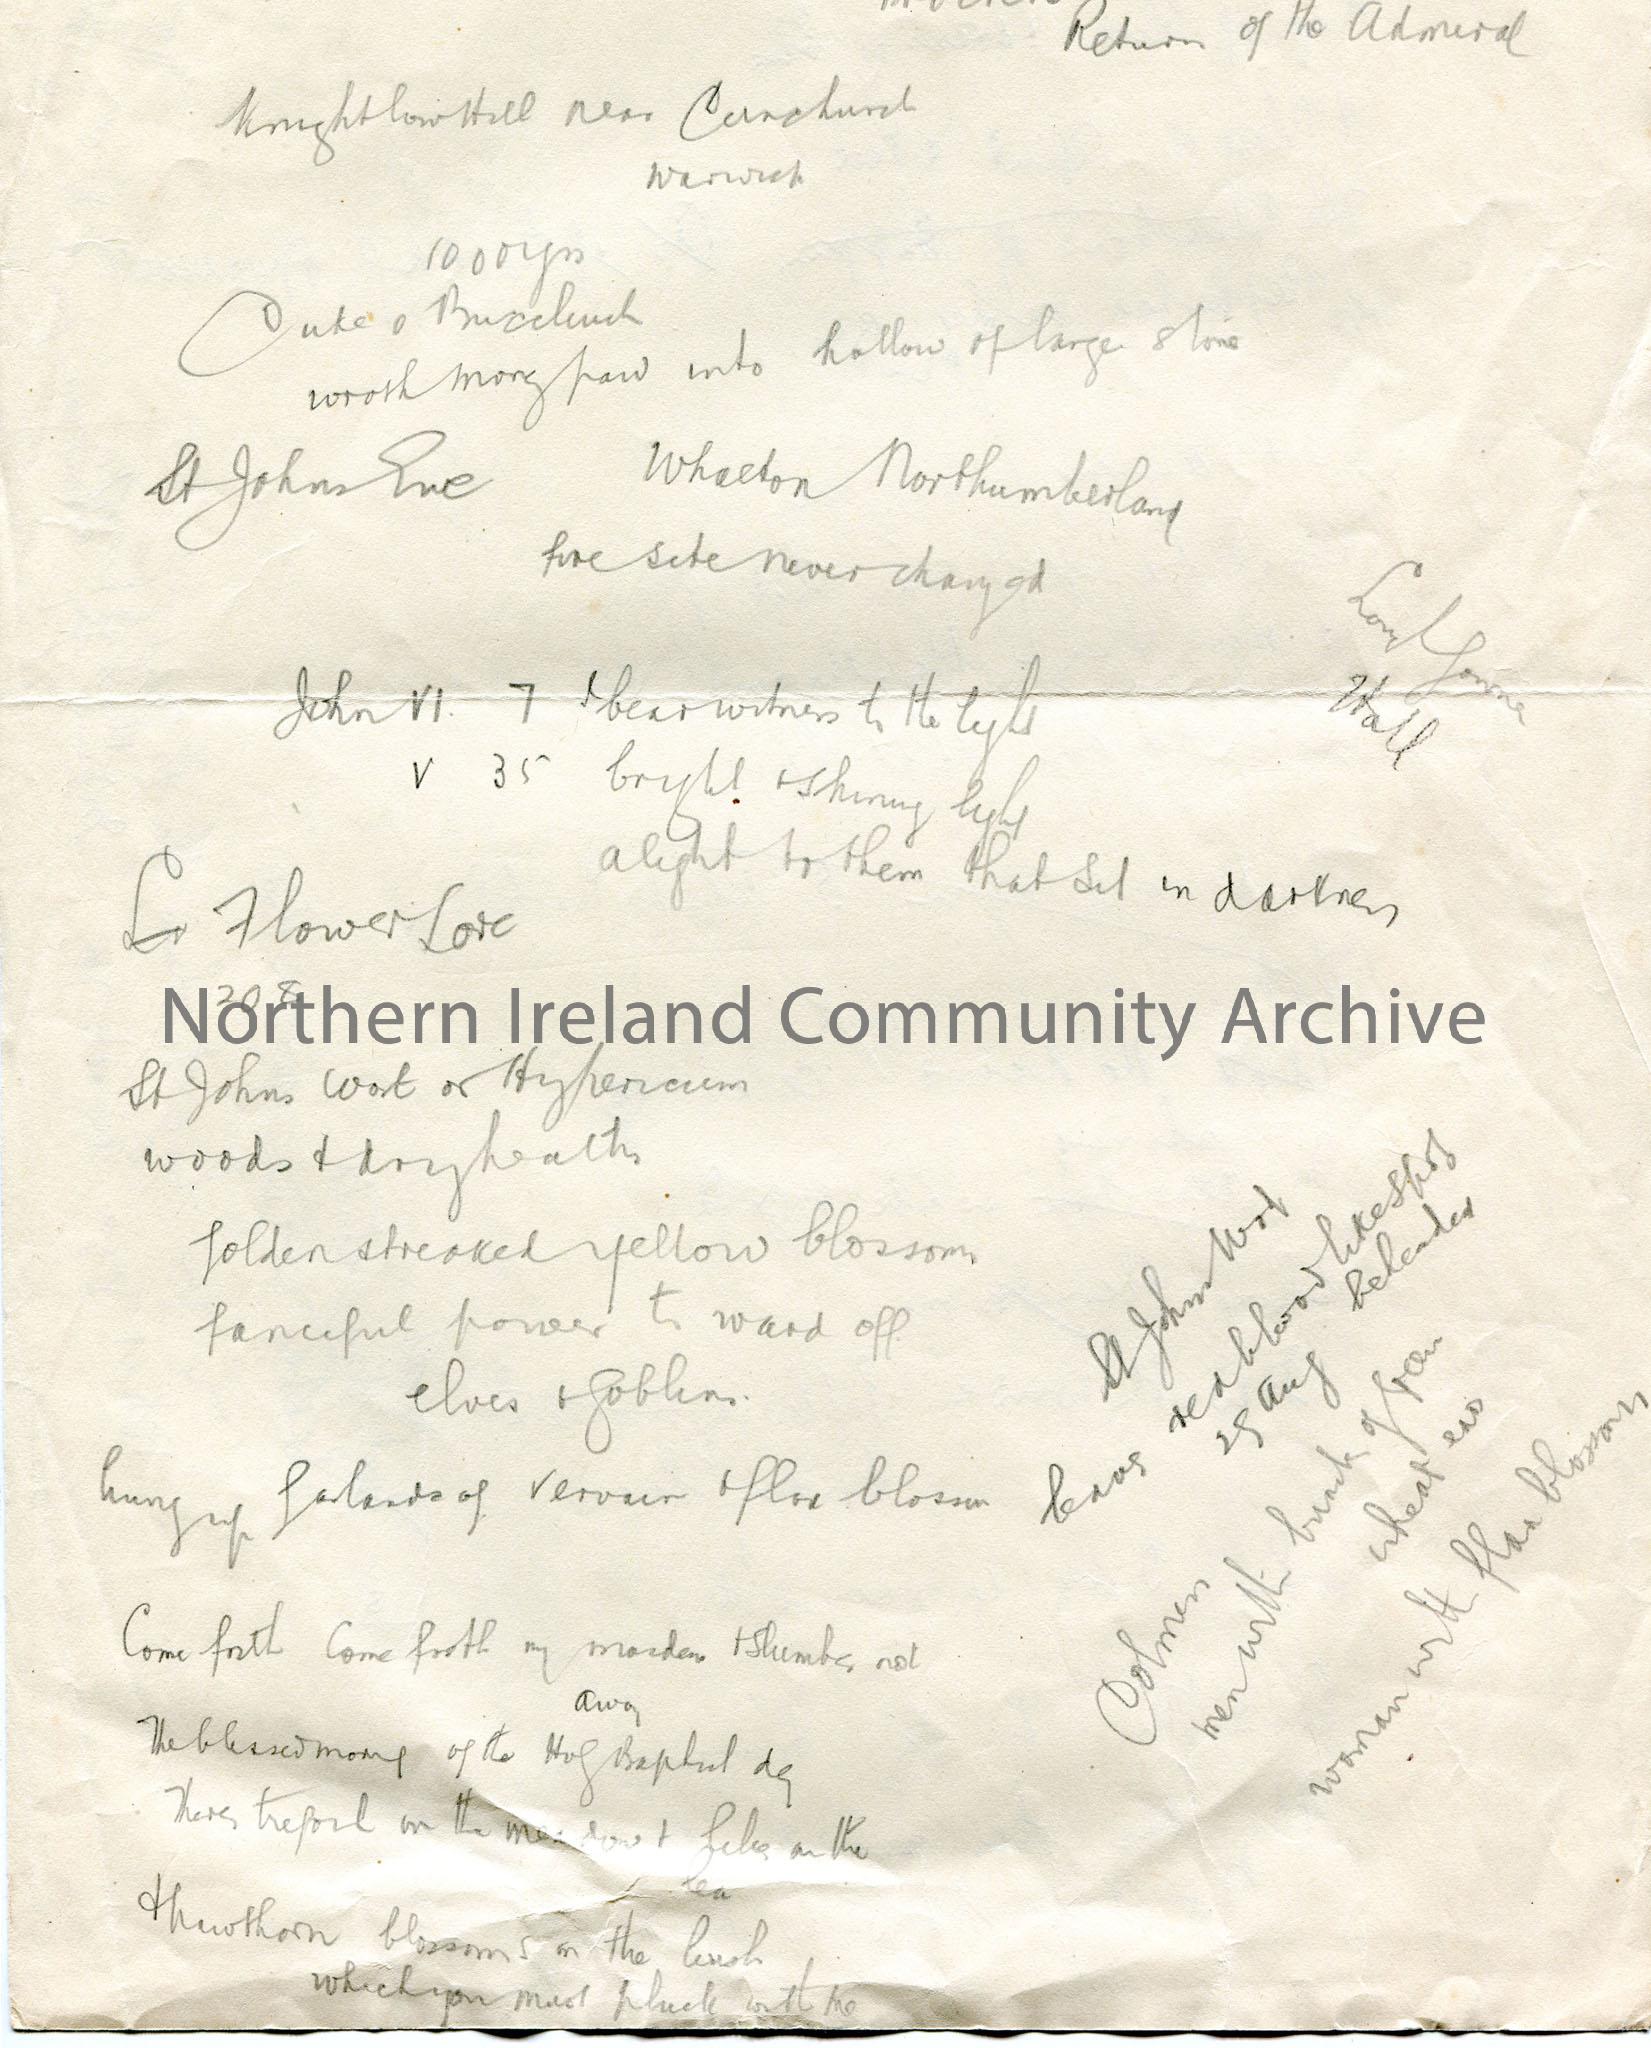 Return of the Admiral
Knightlow Hill near Dunchurch
Warwick
1000 yrs
Duke o Buccleuch
wroth money paid into hollow of large stone
St Johns Eve Whalton Northumberland
fire site never changed
John VI. 7 to bear witness to the light
V 35 bright & shining light
a light to them that sit in darkness
Flower Lore
208
St Johns Wort or Hypericum
woods & dry heaths
golden streaked yellow blossoms
fanciful power to ward off
elves & goblins.
hung up garlands of vervain & flax blossom
Come forth Come forth my maidens & slumber not
away
The blessed morng of the Holy Baptist day
Theres trefoil on the meadow & lilies on the
lea
& hawthorn blossoms on the bush
which you must pluck with me
Hall
St Johns Wort
leaves red blood like spots
29 Aug beheaded
Colmen
men with bunch of
wheat ears
woman with flax blossoms
Northern Ireland Community Archive